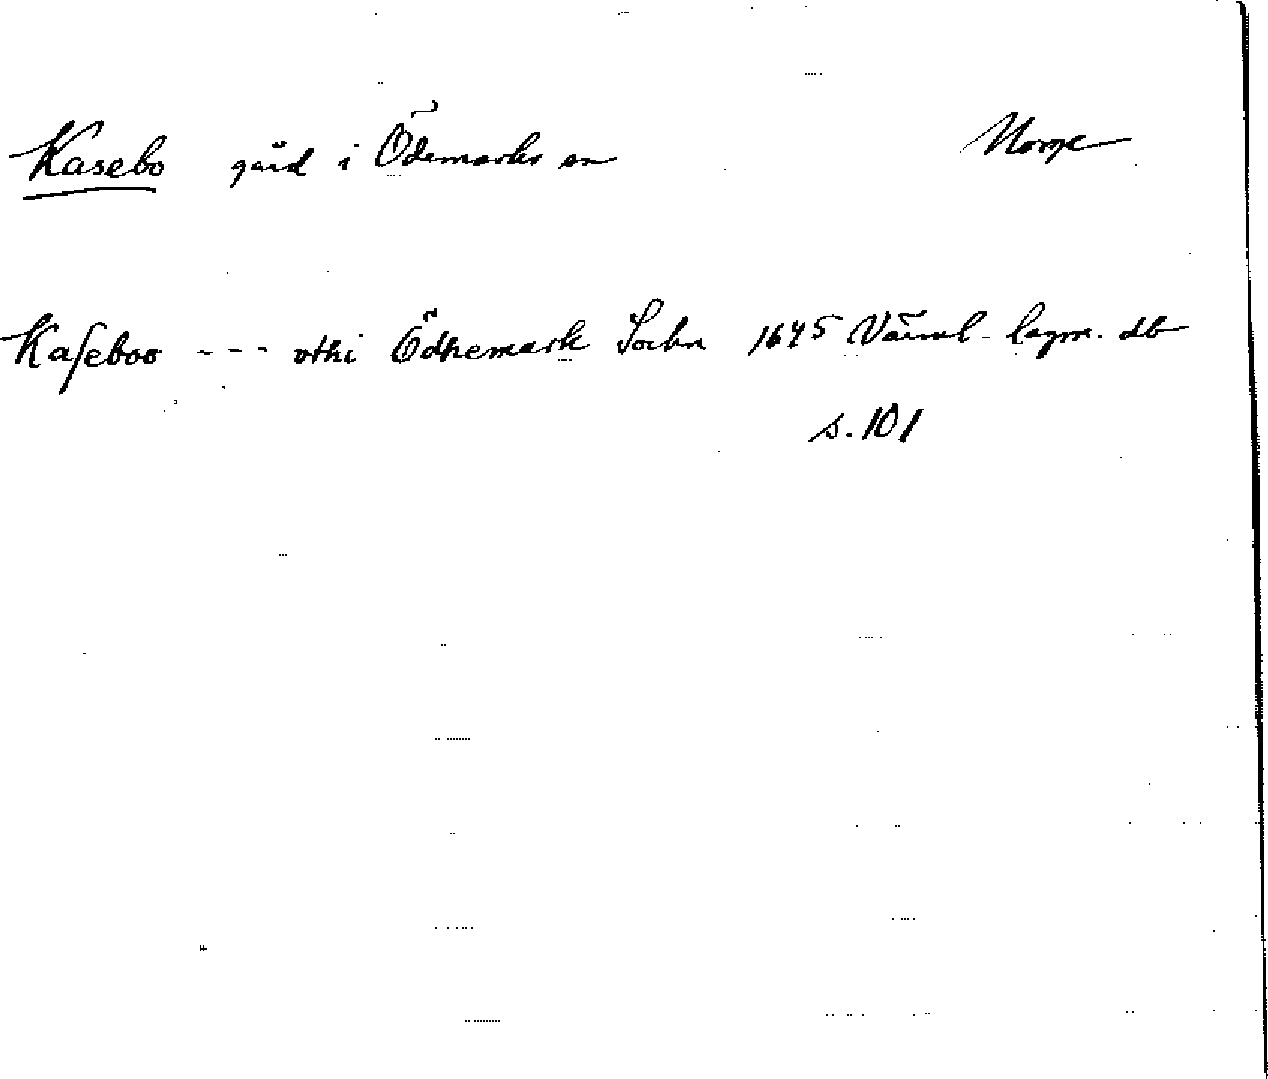 Kasebo gård i Ödemarks sn Norge
Kaſeboo --- vthi Ödhemark Sochn 1645 Värml. lagm. db
s. 101